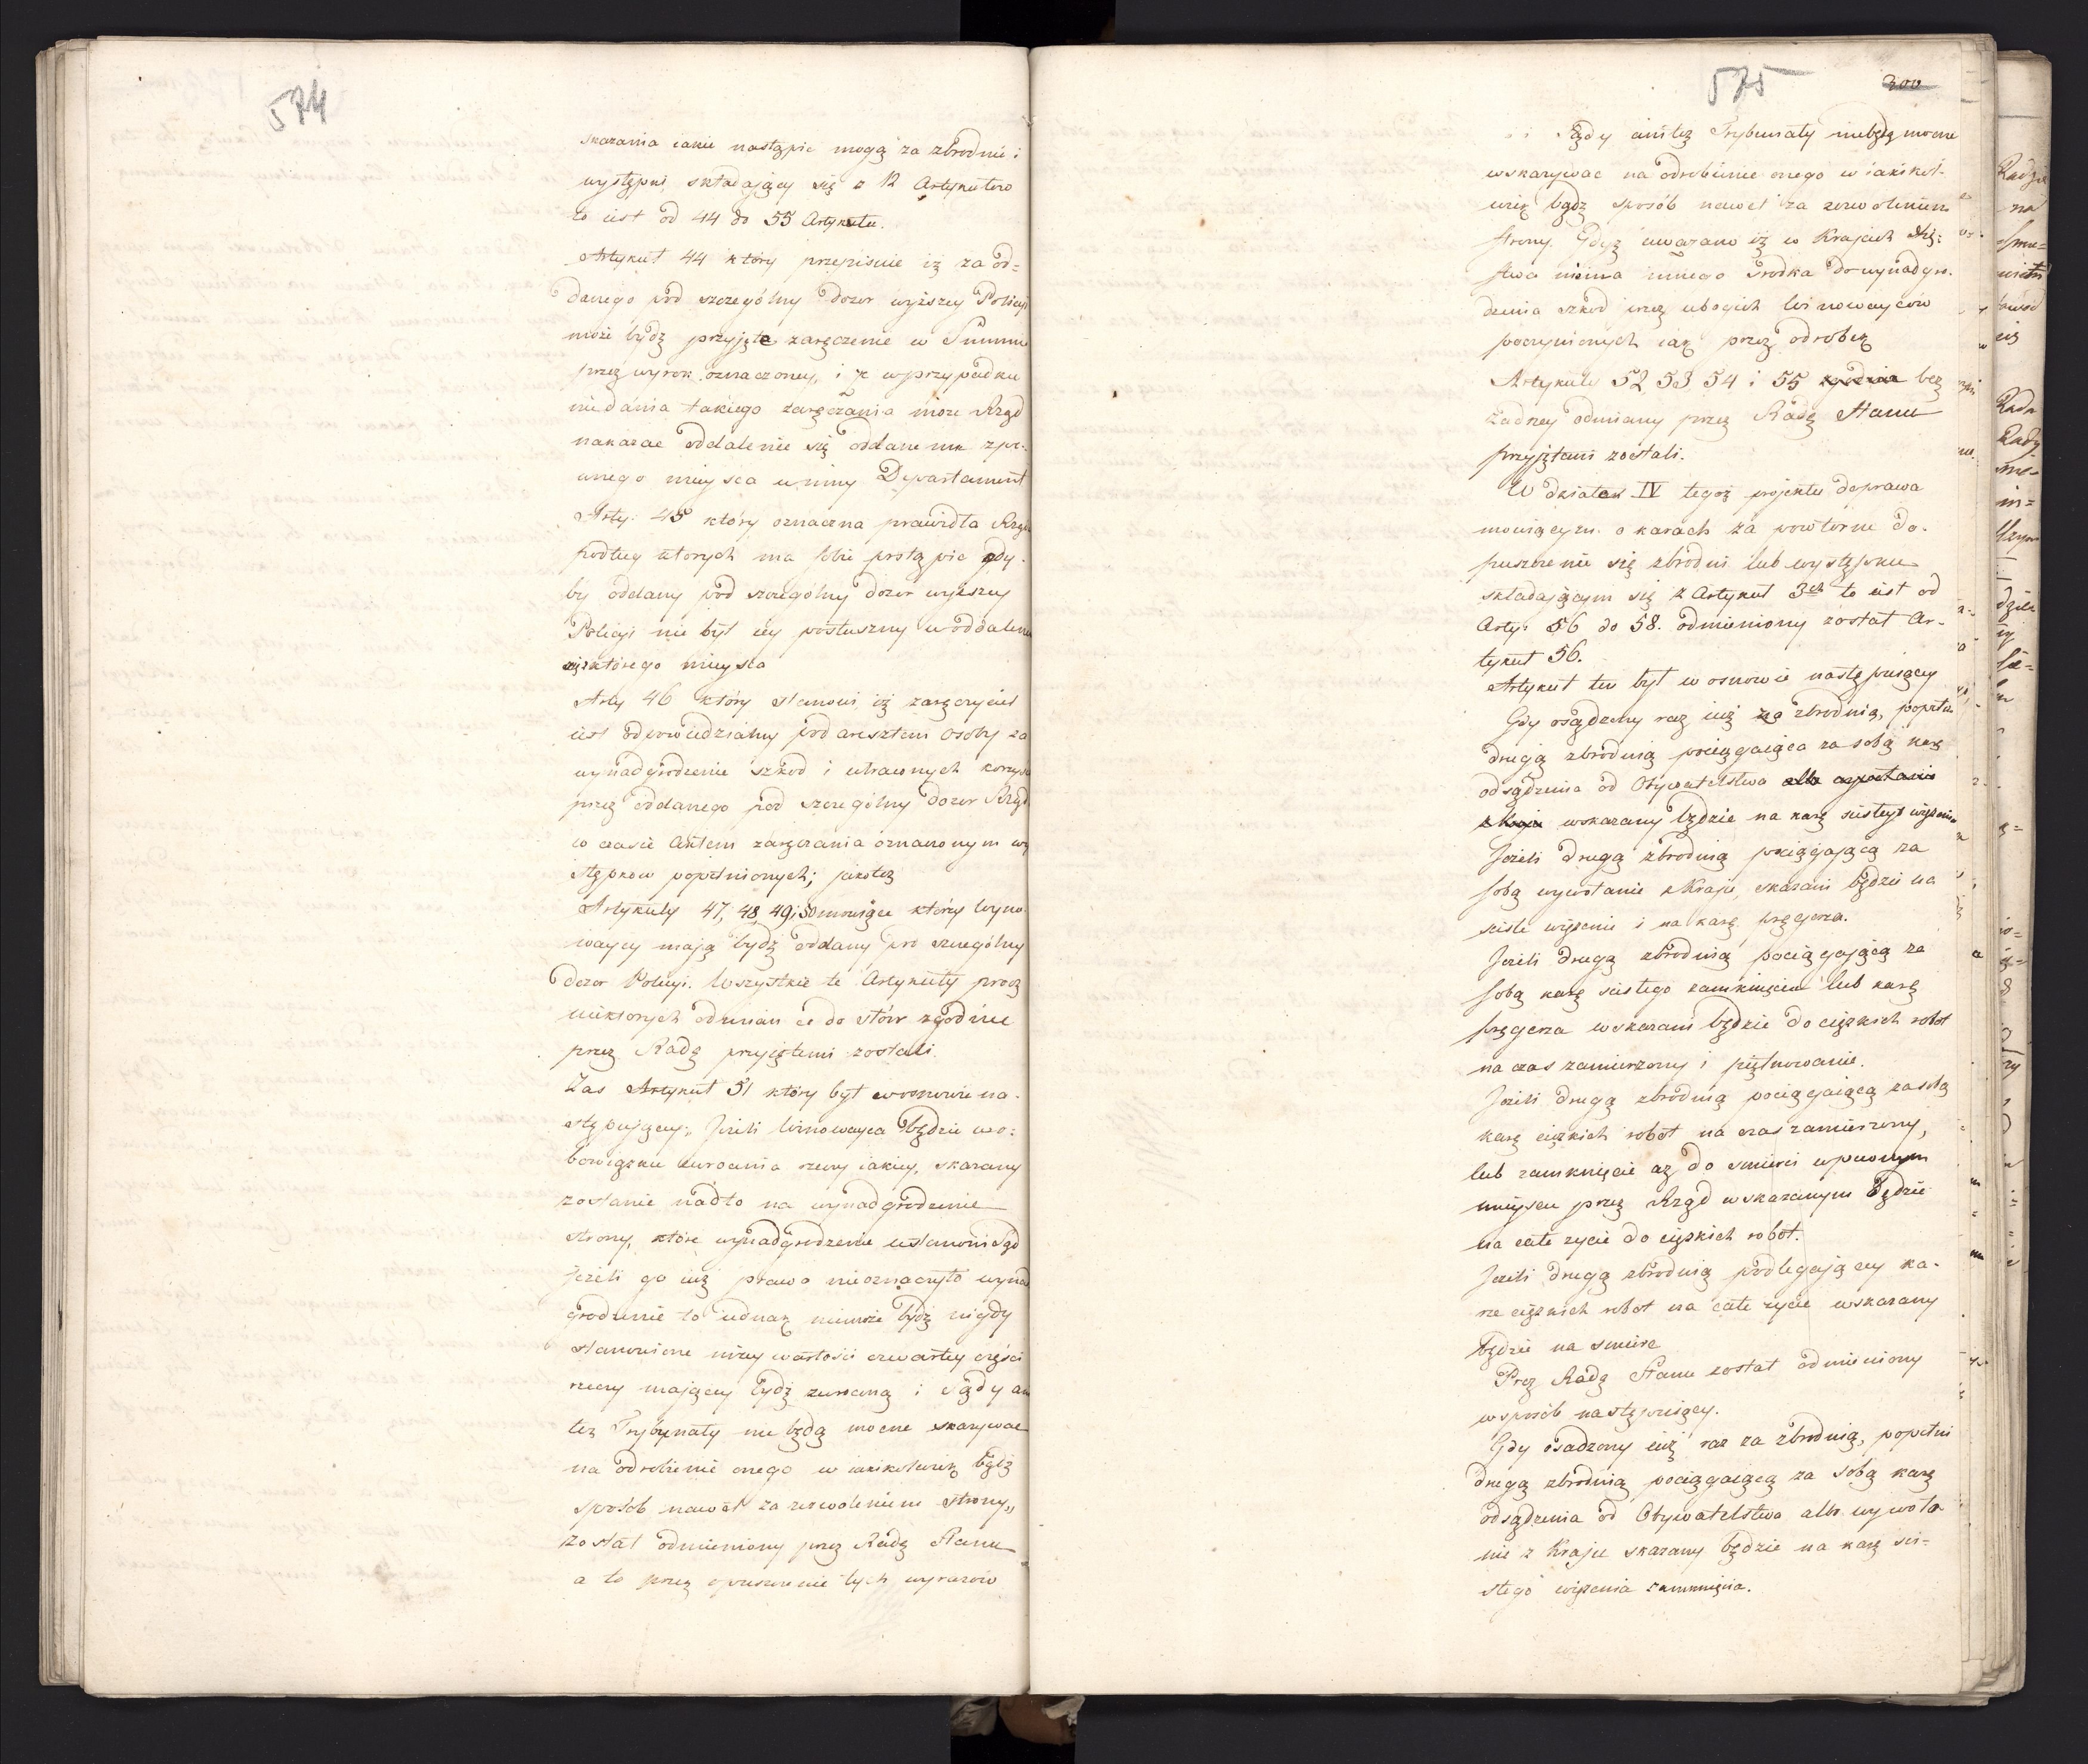 574
skazania iakie nastąpic mogą za zbrodnie i
występki, składaiący się z 12 Artykułow
to iest od 44 do 55 Artykułu.
Artykuł 44 który przepisuie iż za od=
danego pod szczególny Dozor wyższey Policyi
może bydź przyjęte zaręczenie w Summie
przez wyrok oznaczoney, i że w przypadku
niedania takiego zaręczania może Rząd
nakazac oddalenie się oddanemu z pe-
wnego mieysca w inny Departament
Arty: 45 który oznacza prawidła Rząd
podług których ma sobie postąpic gdy-
by oddany pod szczególny dozor wyższey
Policyi nie był iey posłuszny w oddaleniu
się z którego mieysca
Arty 46 który stanowi iż zaręczyciel
iest odpowiedzialny pod aresztem osoby za
wynadgrodzenie szkod i utraconych korzysci
przez oddanego pod szczególny Dozor Rząd
w czasie Aktem zaręczania oznaczonym wy
stępkow popełnionych; jakotez
Artykuły 47, 48, 49, i 50 mowiące którzy wyno-
waycy mają bydź oddany pod szczególny
dozor Policyi. Wszystkie te Artykuły procz
niektorych odmian co do słów zgodnie
przez Radę przyiętemi zostali.
Zas Artykuł 51 który był w osnowie na-
stępujący: Jeżeli winowayca będzie w o-
bowiązku zwrocenia rzeczy iakiey, skazany
zostanie nadto na wynadgrodzenie
strony, które wynadgrodzenie ustanowi Sąd
Jeżeli go iuż prawo nieoznaczyło wynad
grodzenie to iednak niemoże bydź nigdy
stanowione niżey wartości czwartey części
rzeczy maiącey bydź zwroconą i sądy ani
też Trybunały nie będą mocne skazywac
na odrobienie onego w iakikolwiek bądź
sposób nawet za zezwoleniem strony„
został odmieniony przez Radę Stanu
a to przez opuszczenie tych wyrazow
575 300
i Sądy aniteż Trybunały niebędą mocne
wskazywac na odrobienie onego w iakikol-
wiek bądz sposób nawet za zezwoleniem
strony. Gdyż uwazano iż w Krajach Xię:
stwa niema innego srodka do wynadgro-
dzenia szkod przez ubogich winowayców
poczynionych iak przez odrobek
Artykuły 52 53 54 i 55 zgodnie bez
żadney odmiany przez Radę Stanu
przyiętemi zostali.
W dziale IV tegoż projektu doprawa
mowiącym o karach za powtorne do-
puszczenie się zbrodni lub występku
składającym się z Artykuł 3ch to iest od
Arty: 56 do 58. odmieniony został Ar-
tykuł 56.
Artykuł ten był w osnowie następuiący
Gdy osądzony raz iuż za zbrodnią, popełni
drugą zbrodnią pociągaiąca za sobą karę
odsądzenia od Obywatelstwa albo wywołania
z Kraju wskazany będzie na karę scisłego więzienia
Jeżeli drugą zbrodnią pociągającą za
sobą wywołanie z Kraju, skazani będzie na
scisłe więzienie i na karę pręgierza.
Jeżeli drugą zbrodnią pociągającą za
sobą karę scisłego zamknięcia lub karę
pręgierza wskazani będzie do ciężkich robot
na czas zamierzony i piętnowanie.
Jeżeli drugą zbrodnią pociągaiącą za sobą
karę cięzkich robot na czas zamierzony,
lub zamknięcie az do smierci w pewnym
mieyscu przez Rząd wskazanym Będzie
na całe zycie do cięzkich robot.
Jeżeli drugą zbrodnią podlegającey ka-
rze cięzkich robot na całe zycie wskazany
będzie na smierc
Przez Radę Stanu został odmieniony
w sposób następuiący.
Gdy osadzony iuż raz za zbrodnią, popełni
drugą zbrodnią pociągaiącą za sobą karę
odsądzenia od Obywatelstwa albo wywoła-
nie z Kraju skazany będzie na karę sci=
słego więzienia zamknięcia.